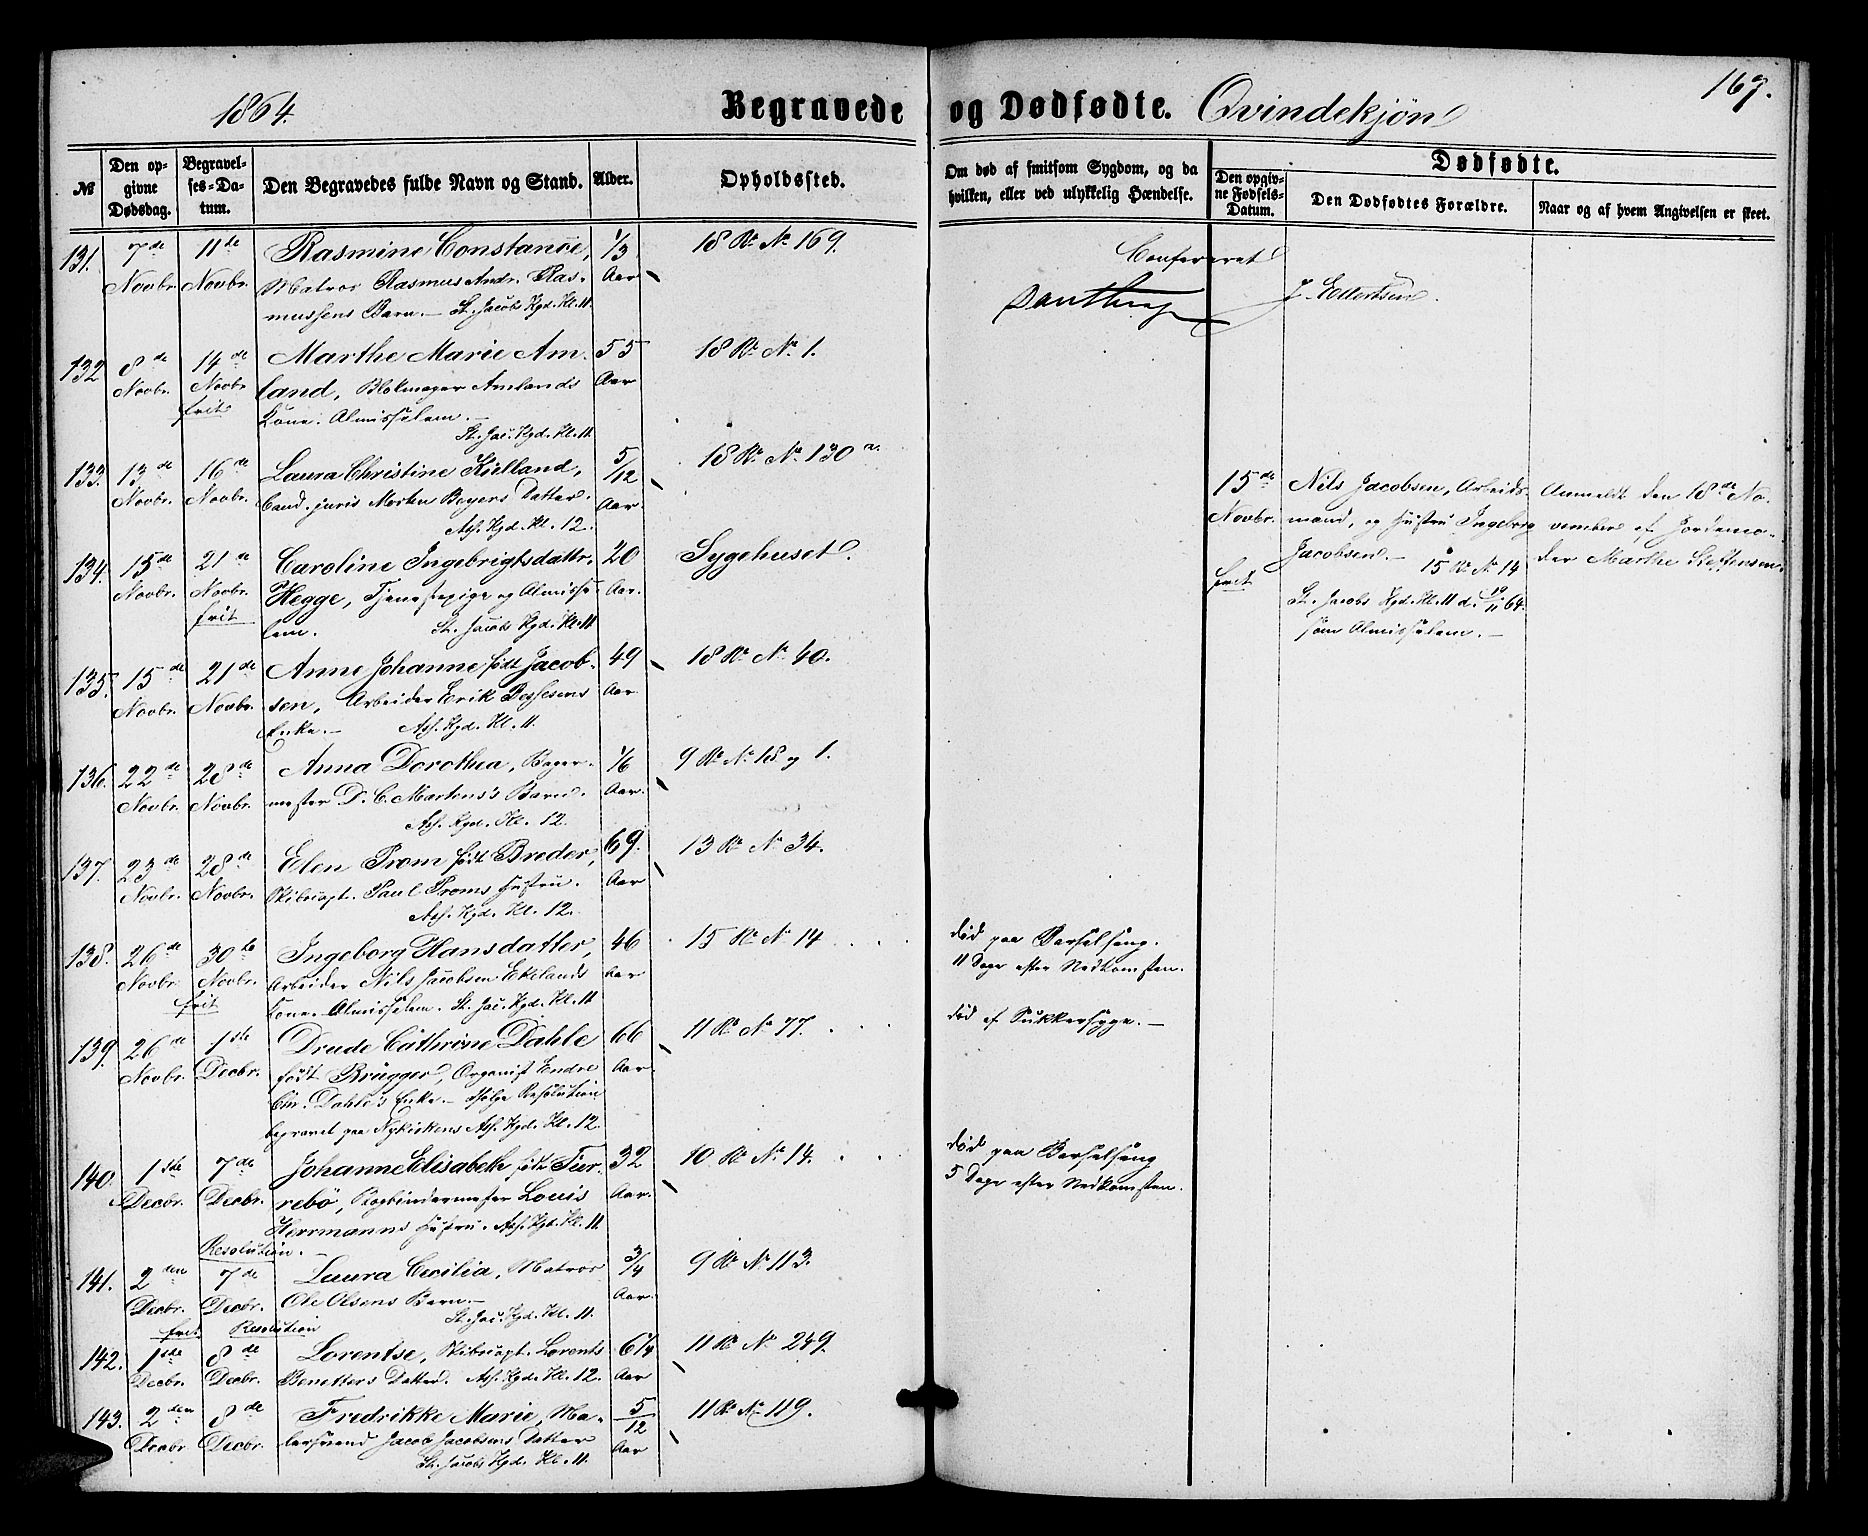 1864.
Begravede og Dødfødte. Qvindekjøn
167.
№
Den opgivne Dødsdag.
Begravelses-Datum.
Den Begravedes fulde Navn og Stand.
Alder.
Opholdssted.
Om død af smitsom Sygdom, og da hvilken, eller ved ulykkelig Hændelse.
Dødfødte.
Den opgivne Fødsels-Datum.
Den Dødfødtes Forældre.
Naar og af hvem Angivelsen er skeet.
131. 7de 11te Rasmine Constance, 1/3 18 R. No 169.
Novbr. Novbr. Matros Rasmus Andr. Ras- Aar
mussens Barn. – St. Jacobs Kgd. Kl. 11.
Confereret
J. Ellertsen.
132 8de 14de Marthe Marie Am- 55 18 R. No 1.
Novbr. Novbr. land, Blokmager Amlands Aar
frit Kone. Almisselem. –
St. Jac. Kgd. Kl. 11.
133. 13de 16de Laura Christine Kielland, 5/12 18 R. No 130 a.
Novbr. Novbr. Cand. juris Morten Beyers Datter. Aar.
Ass. Kgd. Kl. 12.
134. 15de 21de Caroline Ingebrigtsdattr. 20 Sygehuset.
Novbr. Novbr. Hegge, Tjenestepige og Almisse- Aar.
frit lem. St. Jacobs Kgd. Kl. 11
15de Nils Jacobsen, Arbeids- Anmeldt den 18de No-
Novbr. mand, og Hustru Ingeborg vember af Jordemo-
Jacobsen. – 15 R. No 14 der Marthe Steffensen.
frit St. Jacobs Kgd. Kl. 11 d. 19/11 64.
som Almisselem. –
135. 15de 21de Anne Johanne født Jacob- 49 18 R. No 40.
Novbr. Novbr. sen, Arbeider Erik Aar
Enke. – Ass. Kgd. Kl. 11.
136. 22de 28de Anna Dorothea, Bager- 1/6 9 R. No 18 og 1.
Novbr. Novbr. mester D. C. Martens's Barn. Aar.
Ass. Kgd. Kl. 12.
137. 23de 28de Elen Prom født Breder, 69. 13 R. No 34.
Novbr. Novbr. Skibscapt. Paul Proms Hustru. Aar
Ass. Kgd. Kl. 12.
138. 26de 30te Ingeborg Hansdatter, 46 15 R. No 14 død paa Barselseng.
Novbr. Novbr. Arbeider Nils Jacobsen Ekelands Aar 11 Dage efter Nedkomsten.
frit Kone. Almisselem. St. Jac. Kgd. Kl. 11
139. 26de 1ste Drude Cathrine Dahle 66 11 R. No 77. død af Sukkersyge. –
Novbr. Decbr. født Brügger, Organist Endre Aar.
Chr. Dahle's Enke – ifølge Resolution
begravet paa Nykirkens Ass. Kgd. Kl. 12.
140. 1ste 7de Johanne Elisabeth født Tier- 32 10 R. No 14. død paa Barselseng
Decbr. Decbr. rebö, Bogbindermester Louis Aar. 5 Dage efter Nedkomsten.
Herrmanns Hustru. Ass. Kgd. Kl. 11
Resolution. –
141. 2den 7de Laura Cecilia, Matros 3/4 9 R. No 113.
Decbr. Decbr. Ole Olsens Barn. – Aar.
St. Jac. Kgd. Kl. 11.
frit Resolution
142. 1ste 8de Lorentse, Skibscapt. Lorents 6 1/4 11 R. No 249.
Decbr. Decbr. Benetters Datter. Ass. Kgd. Kl. 12. Aar
143. 2den 8de Fredrikke Marie, Ma- 5/12 11 R. No 119.
Decbr Decbr. lersvend Jacob Jacobsens Datter Aar
St. Jacobs Kgd. Kl. 11.